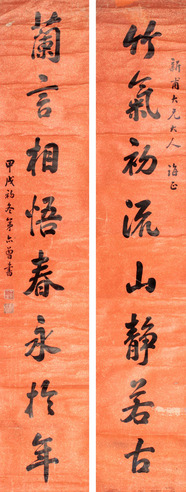 新甫大兄大人 法正
竹氣初流山靜若古
蘭言相悟春永於年
甲戌初冬